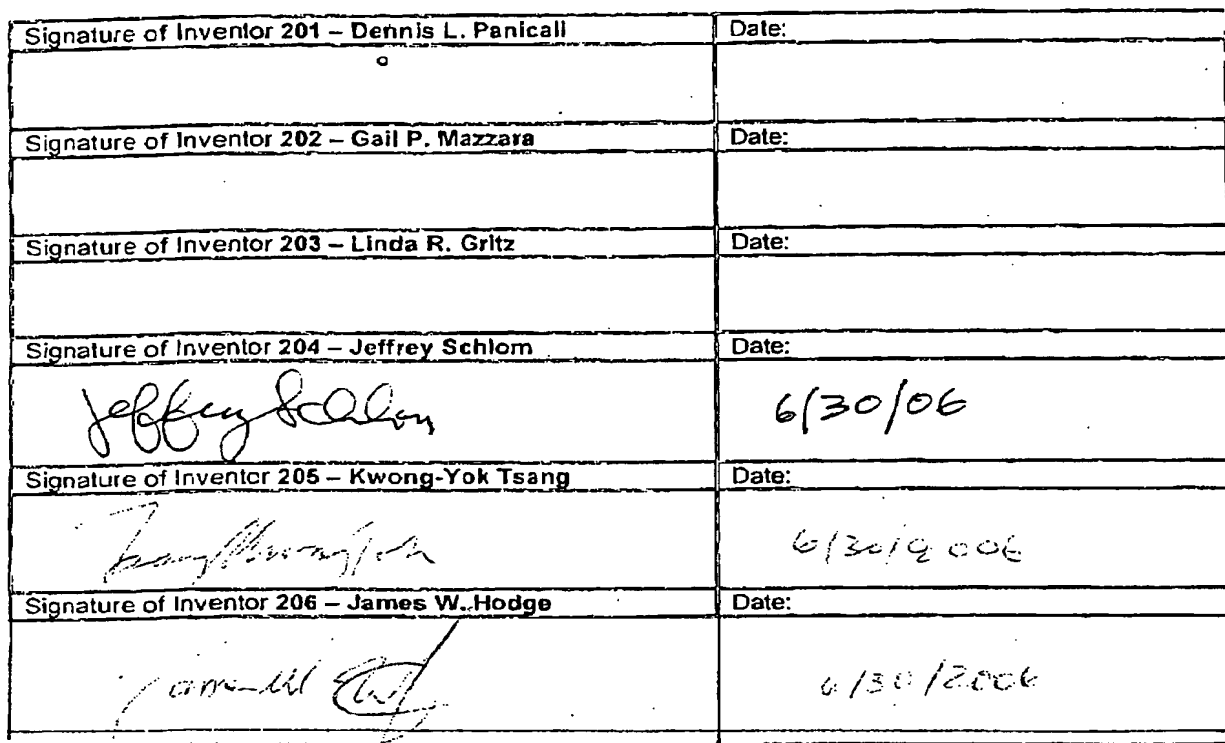 Signature of Inventor 201 – Dennis L. Panicali Date:
Signature of Inventor 202 – Gail P. Mazzara Date:
Signature of Inventor 203 – Linda R. Gritz Date:
Signature of Inventor 204 – Jeffrey Schlom Date:
Jeffrey Schlom 6/30/06
Signature of Inventor 205 – Kwong-Yok Tsang Date:
Tsang Kwong Yok 6/30/2006
Signature of Inventor 206 – James W. Hodge Date:
James W 6/30/2006